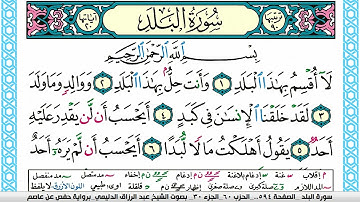 ترتيبها ٩٠
سُورَةُ الْبَلَدِ
آياتها ٢٠
بِسْمِ ٱللَّهِ ٱلرَّحْمَٰنِ ٱلرَّحِيمِ
لَآ أُقْسِمُ بِهَٰذَا ٱلْبَلَدِ ١ وَأَنتَ حِلٌّۢ بِهَٰذَا ٱلْبَلَدِ ٢ وَوَالِدٍ وَمَا وَلَدَ
٣ لَقَدْ خَلَقْنَا ٱلْإِنسَٰنَ فِى كَبَدٍ ٤ أَيَحْسَبُ أَن لَّن يَقْدِرَ عَلَيْهِ
أَحَدٌ ٥ يَقُولُ أَهْلَكْتُ مَالًا لُّبَدًا ٦ أَيَحْسَبُ أَن لَّمْ يَرَهُۥٓ أَحَدٌ
سورة البلد الصفحة ٥٩٤ الحزب ٦٠ الجزء ٣٠ بصوت الشيخ عبد الرزاق الدليمي برواية حفص عن عاصم